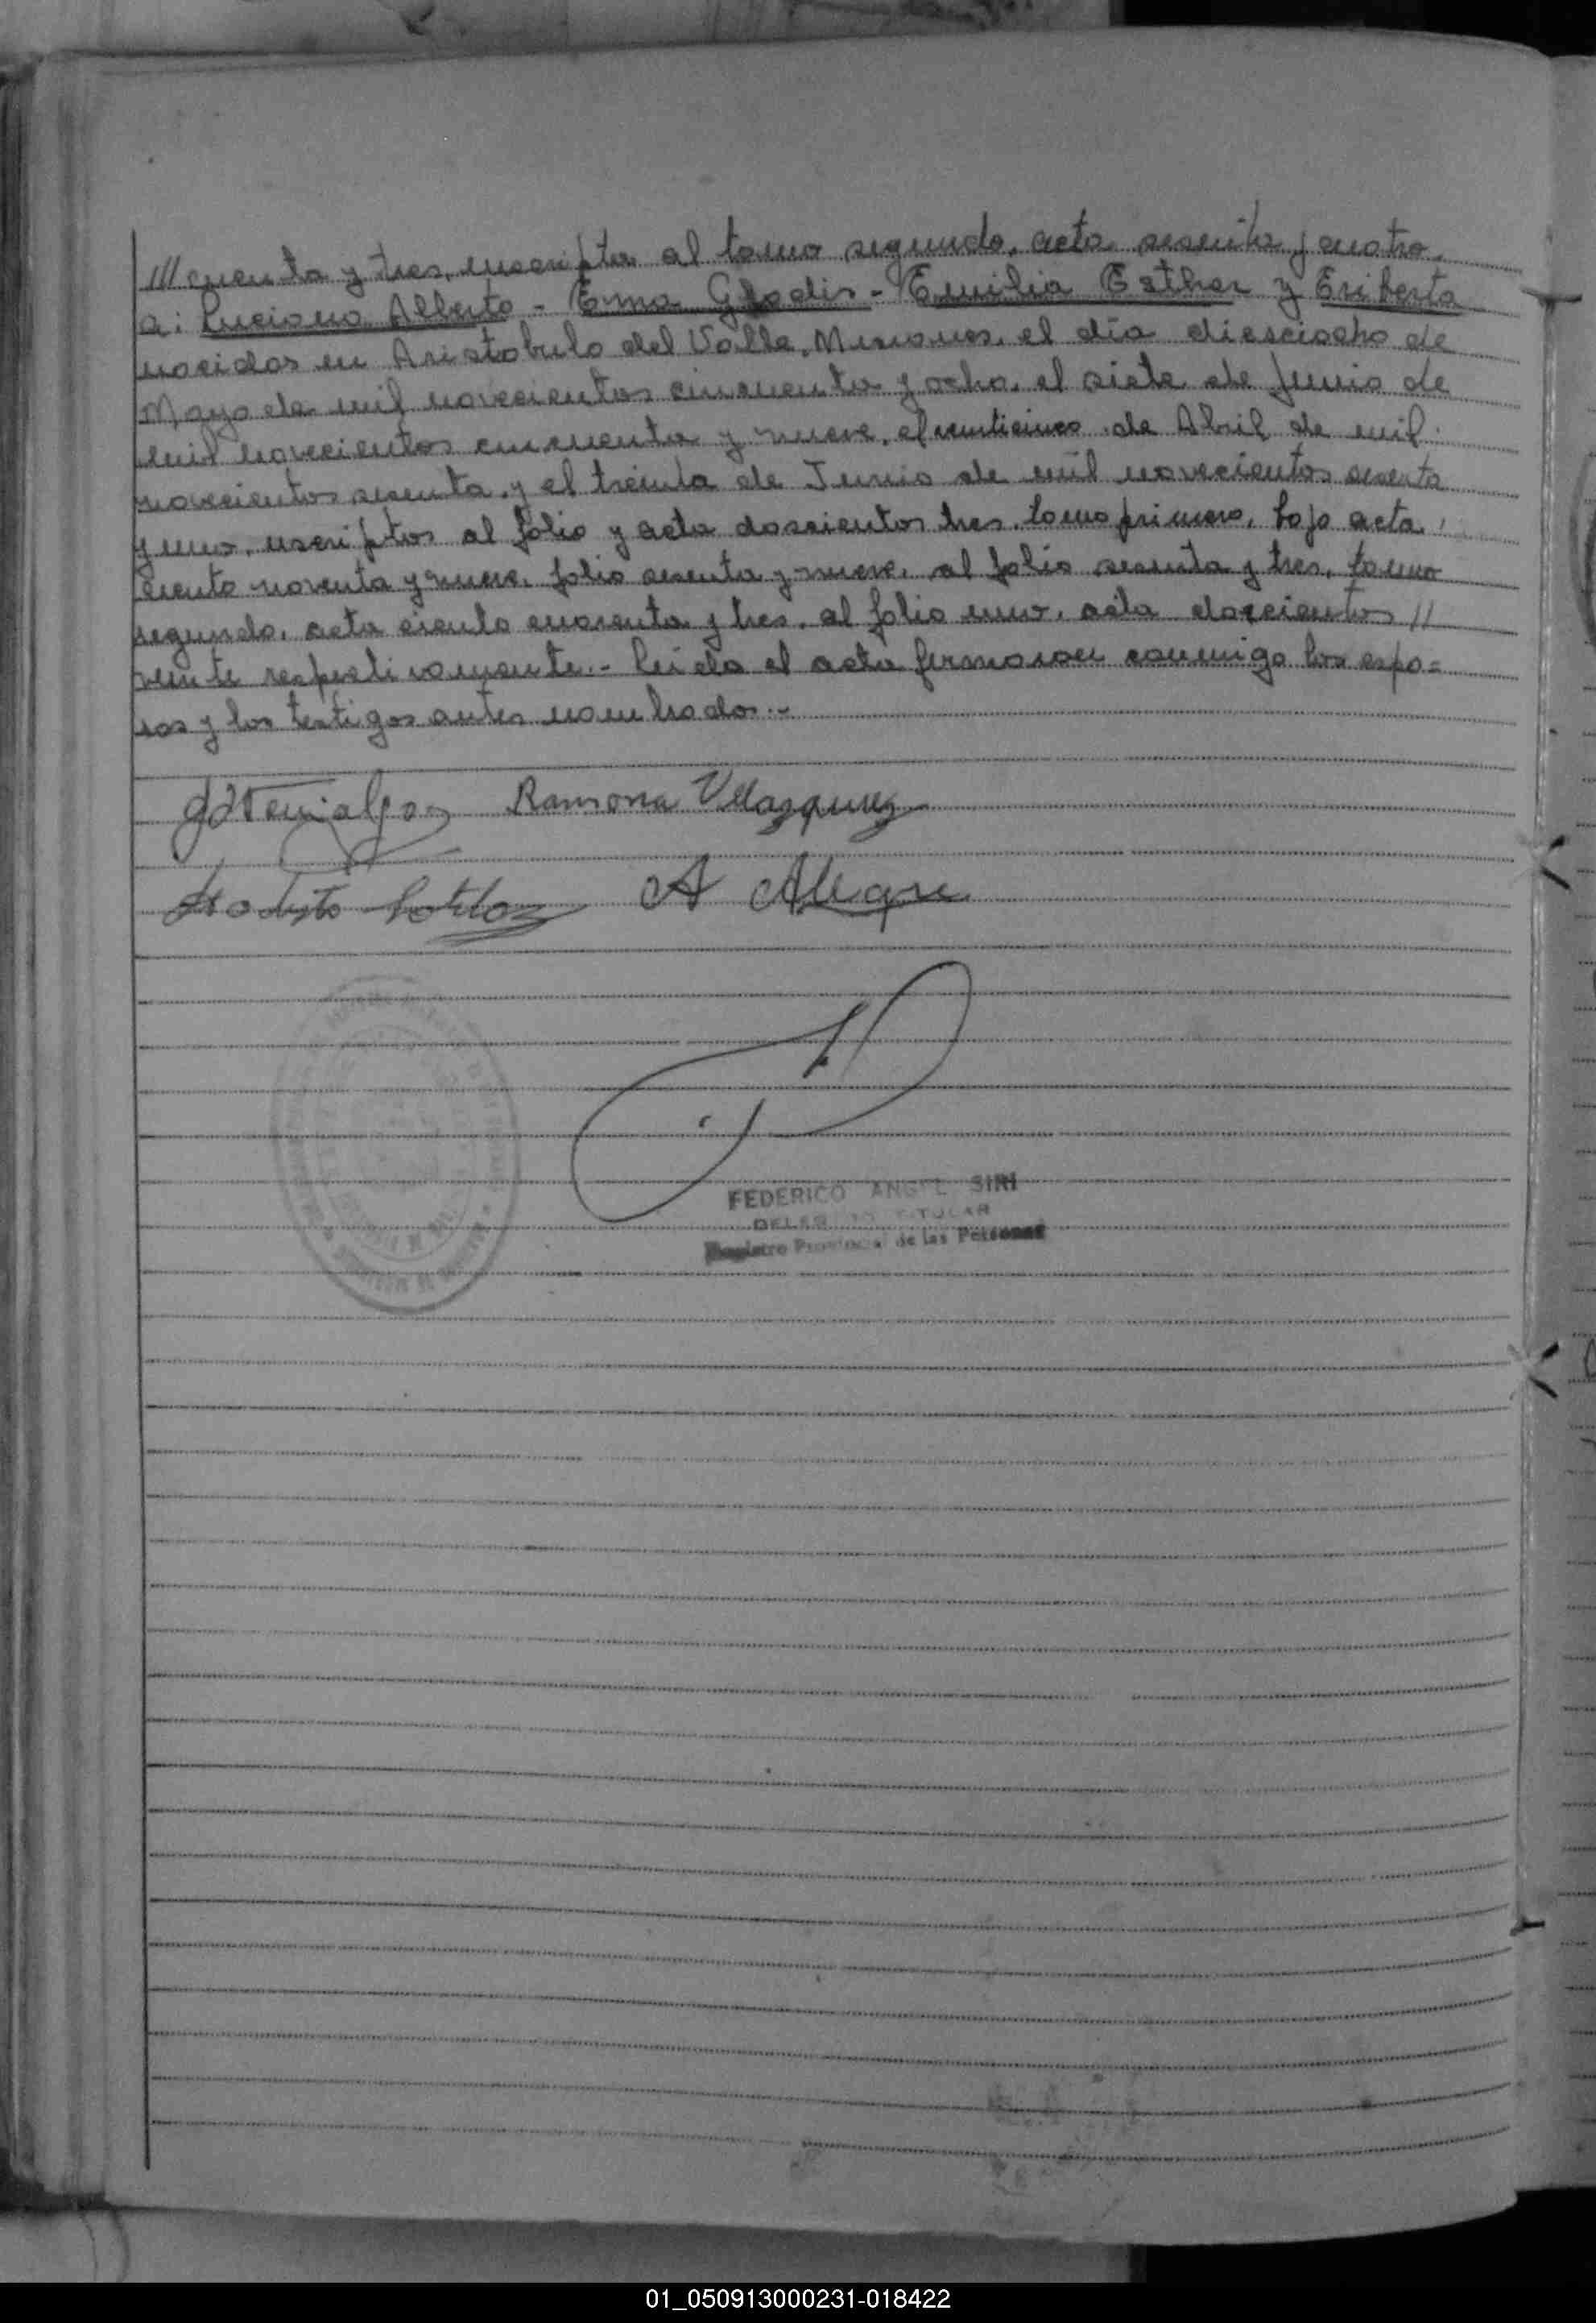 ///cuenta y tres, inscripta al tomo segundo, acta sesenta y cuatro.
a: Luciano Alberto - Ema Gladis - Emilia Esther y Eriberta
nacidos en Aristobulo del Valle, Misiones, el día diesciocho de
Mayo de mil novecientos cincuenta y ocho, el siete de Junio de
mil novecientos cincuenta y nueve, el veinticinco de Abril de mil
novecientos sesenta, y el treinta de Junio de mil novecientos sesenta
y uno, inscriptos al folio y acta doscientos tres, tomo primero, bajo acta
ciento noventa y nueve, folio sesenta y nueve, al folio sesenta y tres, tomo
segundo, acta ciento cuarenta y tres, al folio uno, acta doscientos //
veinte respectivamente.- Leida el acta firmaron conmigo los espo=
sos y los testigos antes nombrados.-
Ramona Velazquez
A Alegre
FEDERICO ANGEL SIRI
TITULAR
Registro Provincial de las Personas
01_050913000231-018422